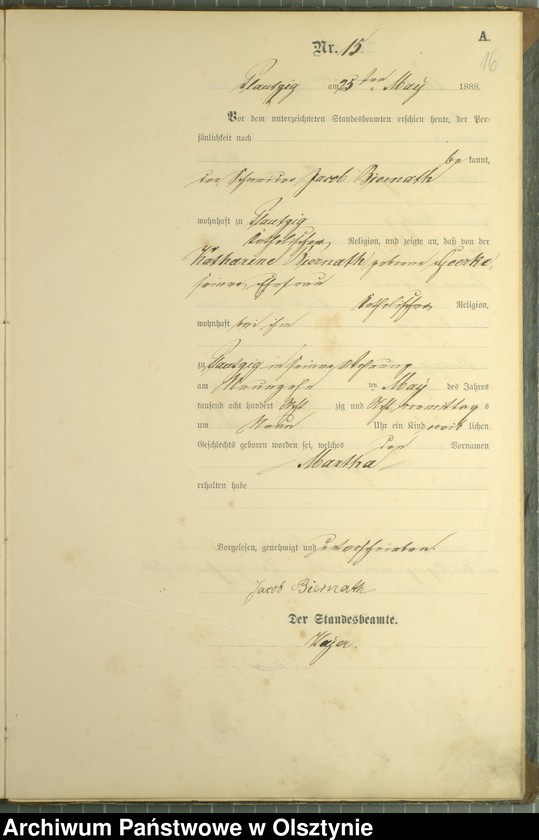 A.
16
Nr. 15
Plautzig am 25 ten May 1888.
Vor dem unterzeichneten Standesbeamten erschien heute, der Per-
sönlichkeit nach
be kannt,
der Schneider Jacob Biernath
wohnhaft zu Plautzig
katholischer Religion, und zeigte an, daß von der
Katharine Biernath geborne Goerke,
seiner Ehefrau
katholischer Religion,
wohnhaft bei ihm
zu Plautzig in seiner Wohnung
am Neunzehn ten May des Jahres
tausend acht hundert Acht zig und Acht vormittag s
um Neun Uhr ein Kind weib lichen
Geschlechts geboren worden sei, welches den Vornamen
Martha
erhalten habe
Vorgelesen, genehmigt und unterschrieben
Jacob Biernath
Der Standesbeamte.
Archiwum Państwowe w Olsztynie